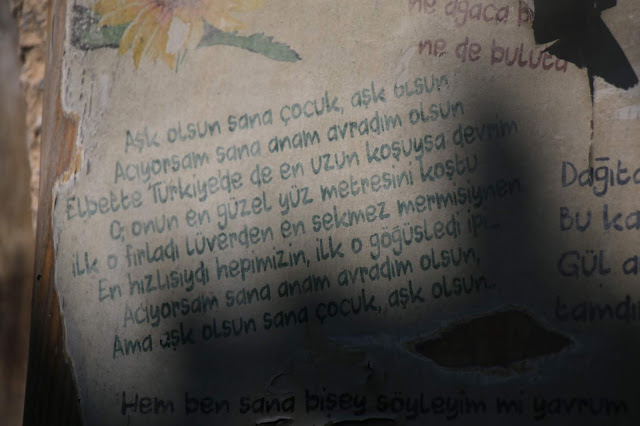 ne ağaca
ne de buluta
Aşk olsun sana çocuk, aşk olsun
Acıyorsam sana anam avradım olsun
Elbette Türkiye'de de en uzun koşuysa devrim
O, onun en güzel yüz metresini koştu
ilk o fırladı lüverden en sekmez mermisiynen
En hızlısıydı hepimizin, ilk o göğüsledi ipi...
Acıyorsam sana anam avradım olsun,
Ama aşk olsun sana çocuk, aşk olsun..
Hem ben sana bişey söyleyim mi yavrum
Dağıta
Bu ka
Gül a
tamdı